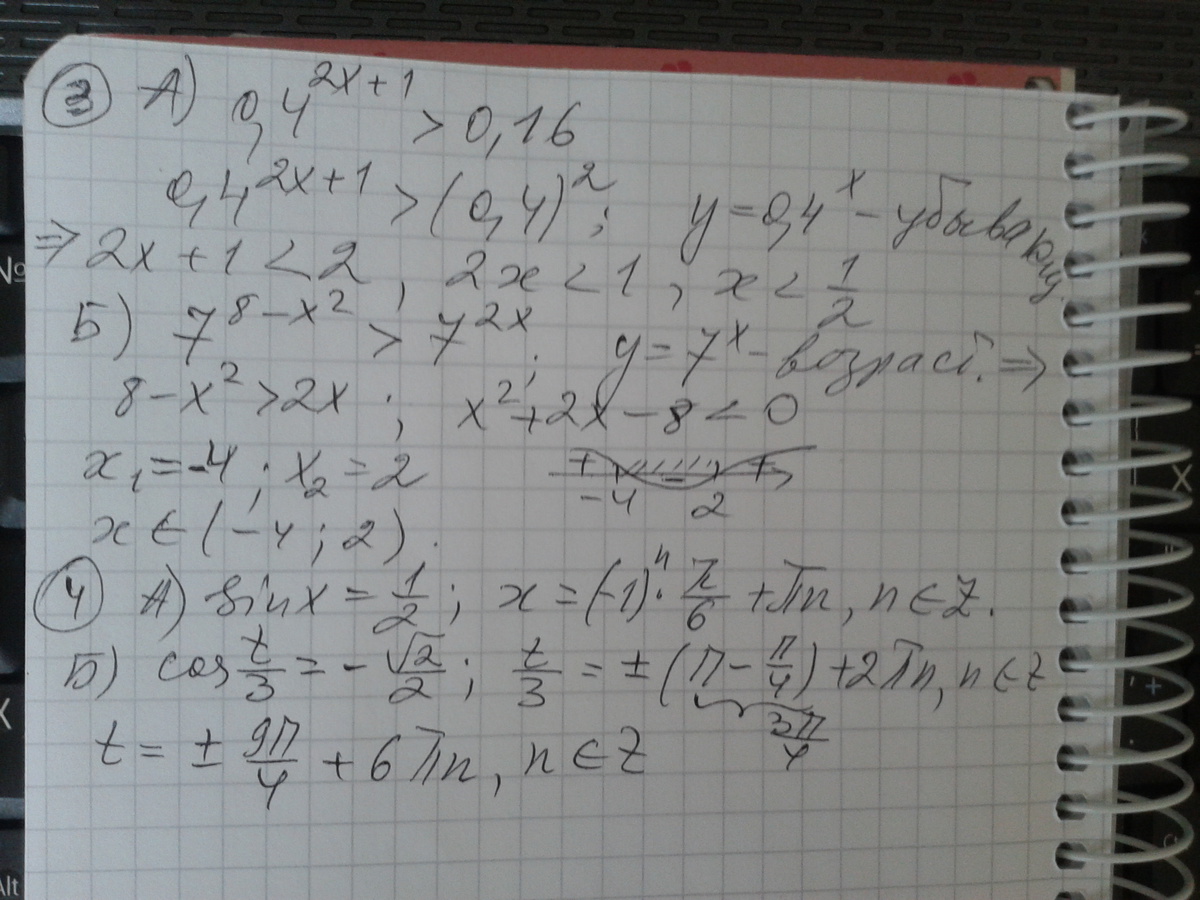 ③ А) 0,4^{2x+1} > 0,16
0,4^{2x+1} > (0,4)^2; y = 0,4^x – убывающ.
⇒ 2x + 1 < 2, 2x < 1, x < 1/2
Б) 7^{8-x^2} > 7^{2x}; y = 7^x – возраст. ⇒
8 – x^2 > 2x; x^2 + 2x – 8 < 0
x_1 = -4; x_2 = 2 + – +
-4 2
x ∈ (-4; 2).
④ А) sin x = 1/2; x = (-1)^n · π/6 + πn, n ∈ Z.
Б) cos t/3 = - √2/2; t/3 = ± (π – π/4) + 2πn, n ∈ Z
3π/4
t = ± 9π/4 + 6πn, n ∈ Z
№
Alt